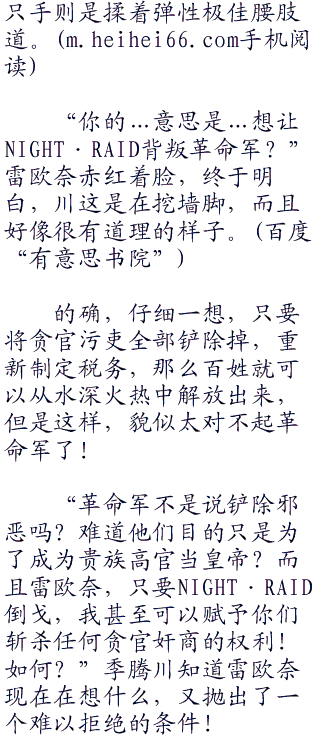 只手则是揉着弹性极佳腰肢
道。(m.heihei66.com手机阅
读)
“你的…意思是…想让
NIGHT·RAID背叛革命军？”
雷欧奈赤红着脸，终于明
白，川这是在挖墙脚，而且
好像很有道理的样子。(百度
“有意思书院”)
的确，仔细一想，只要
将贪官污吏全部铲除掉，重
新制定税务，那么百姓就可
以从水深火热中解放出来，
但是这样，貌似太对不起革
命军了！
“革命军不是说铲除邪
恶吗？难道他们目的只是为
了成为贵族高官当皇帝？而
且雷欧奈，只要NIGHT·RAID
倒戈，我甚至可以赋予你们
斩杀任何贪官奸商的权利！
如何？”季腾川知道雷欧奈
现在在想什么，又抛出了一
个难以拒绝的条件！